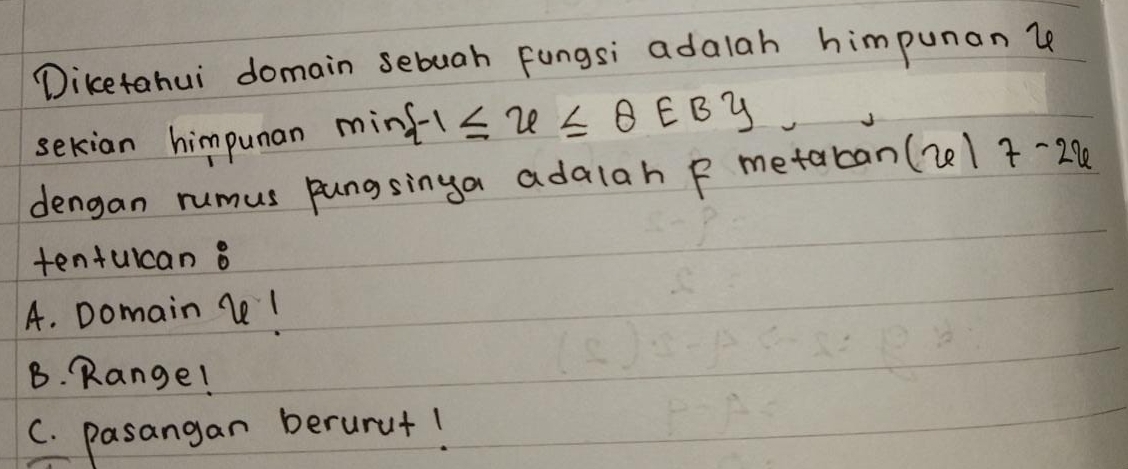 Diketahui domain sebuah fungsi adalah himpunan x
sekian himpunan min{-1 ≤ x ≤ θ E B y
dengan rumus pungsinya adalah F metakan (x) 7 - 2x
tentukan :
A. Domain x !
B. Range!
C. pasangan berurut !